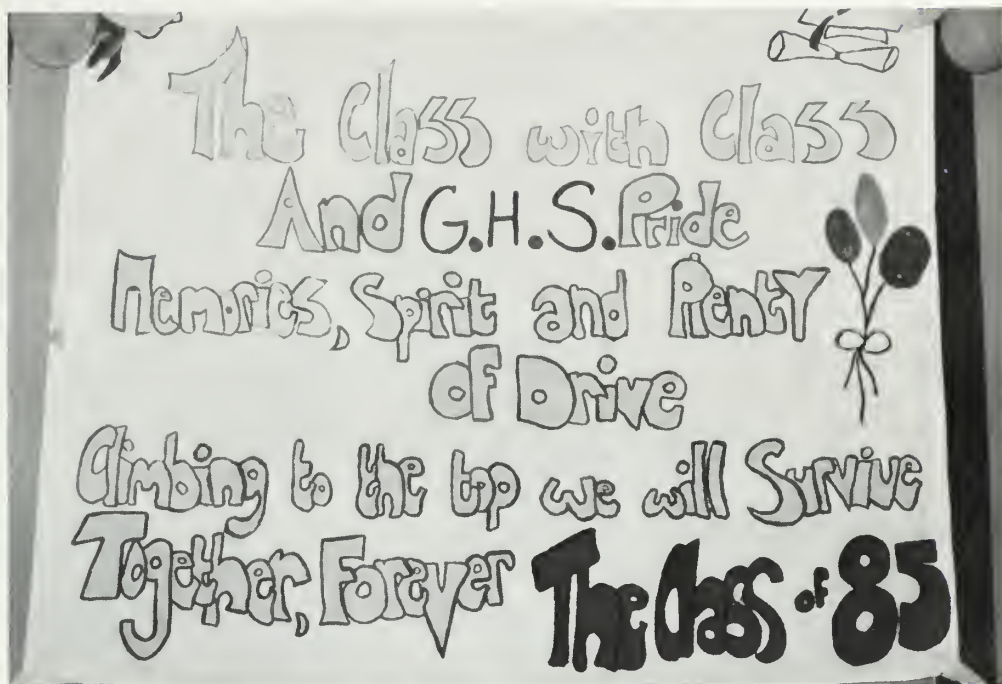 The Class with Class
And G.H.S. Pride
Memories, Spirit and Plenty
of Drive
Climbing to the top we will Survive
Together, Forever The Class of 85